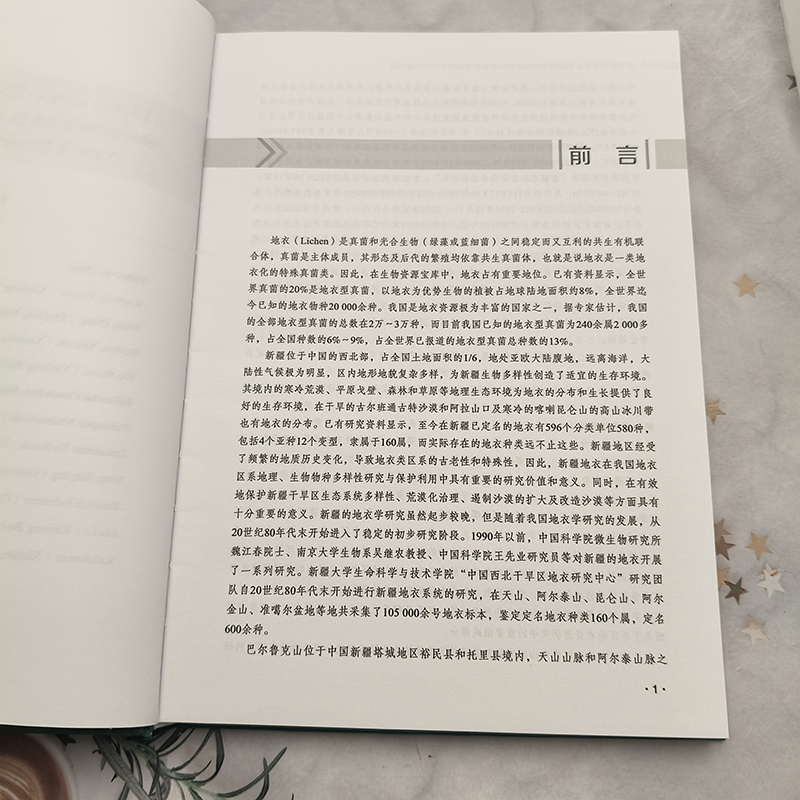 前 言
地衣（Lichen）是真菌和光合生物（绿藻或蓝细菌）之间稳定而又互利的共生有机联
合体，真菌是主体成员，其形态及后代的繁殖均依靠共生真菌体，也就是说地衣是一类地
衣化的特殊真菌类。因此，在生物资源宝库中，地衣占有重要地位。已有资料显示，全世
界真菌的20%是地衣型真菌，以地衣为优势生物的植被占地球陆地面积约8%，全世界迄
今已知的地衣物种20 000余种。我国是地衣资源极为丰富的国家之一，据专家估计，我国
的全部地衣型真菌的总数在2万~3万种，而目前我国已知的地衣型真菌为240余属2 000多
种，占全国种数的6%~9%，占全世界已报道的地衣型真菌总种数的13%。
新疆位于中国的西北部，占全国土地面积的1/6，地处亚欧大陆腹地，远离海洋，大
陆性气候极为明显，区内地形地貌复杂多样，为新疆生物多样性创造了适宜的生存环境。
其境内的寒冷荒漠、平原戈壁、森林和草原等地理生态环境为地衣的分布和生长提供了良
好的生存环境，在干旱的古尔班通古特沙漠和阿拉山口及寒冷的喀喇昆仑山的高山冰川带
也有地衣的分布。已有研究资料显示，至今在新疆已定名的地衣有596个分类单位580种，
包括4个亚种12个变型，隶属于160属，而实际存在的地衣种类远不止这些。新疆地区经受
了频繁的地质历史变化，导致地衣类区系的古老性和特殊性，因此，新疆地衣在我国地衣
区系地理、生物物种多样性研究与保护利用中具有重要的研究价值和意义。同时，在有效
地保护新疆干旱区生态系统多样性、荒漠化治理、遏制沙漠的扩大及改造沙漠等方面具有
十分重要的意义。新疆的地衣学研究虽然起步较晚，但是随着我国地衣学研究的发展，从
20世纪80年代末开始进入了稳定的初步研究阶段。1990年以前，中国科学院微生物研究所
魏江春院士、南京大学生物系吴继农教授、中国科学院王先业研究员等对新疆的地衣开展
了一系列研究。新疆大学生命科学与技术学院“中国西北干旱区地衣研究中心”研究团
队自20世纪80年代末开始进行新疆地衣系统的研究，在天山、阿尔泰山、昆仑山、阿尔
金山、准噶尔盆地等地共采集了105 000余号地衣标本，鉴定定名地衣种类160个属，定名
600余种。
巴尔鲁克山位于中国新疆塔城地区裕民县和托里县境内，天山山脉和阿尔泰山脉之
·1·